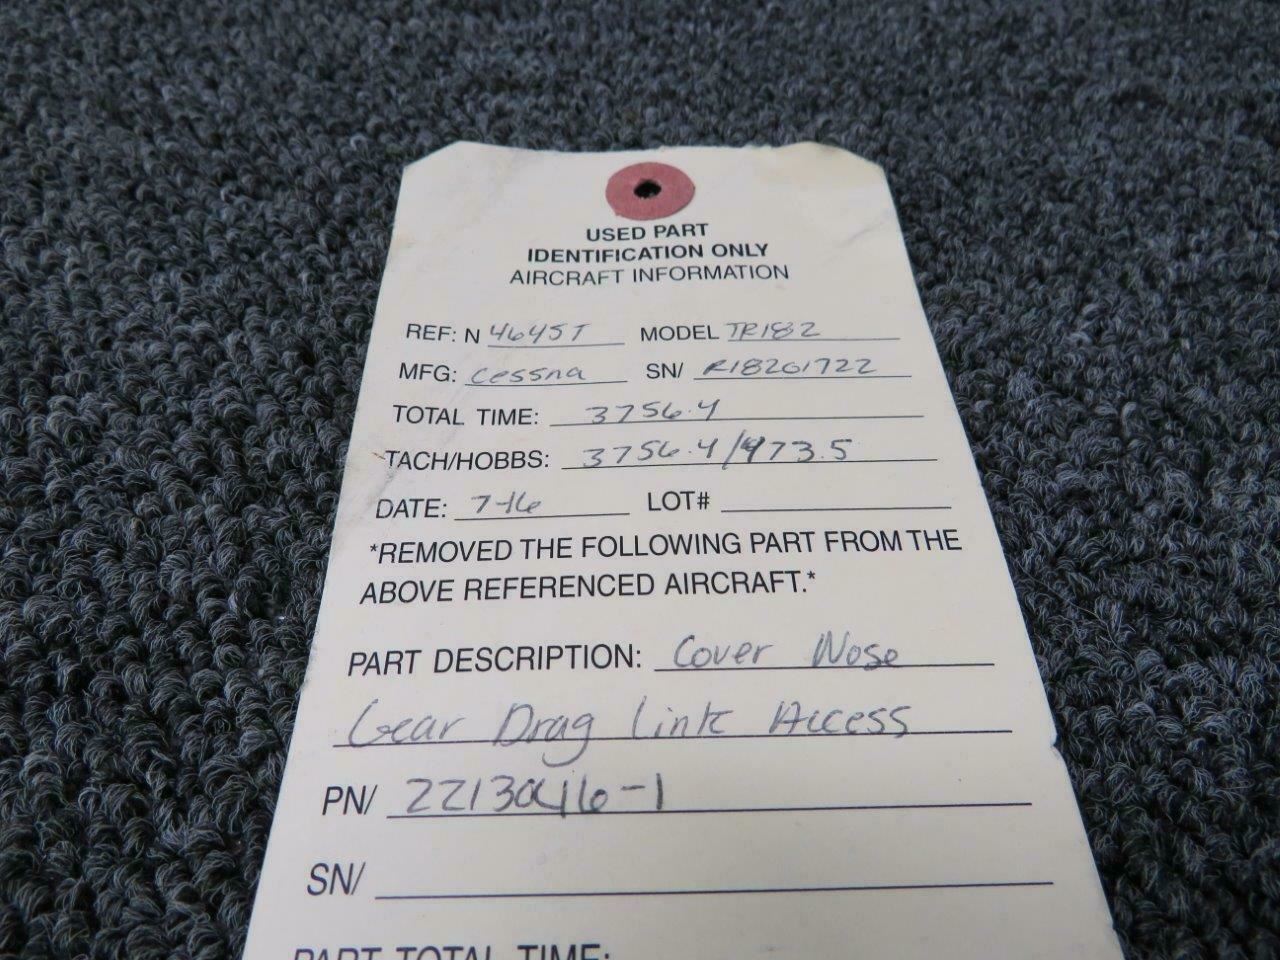 USED PART
IDENTIFICATION ONLY
AIRCRAFT INFORMATION
REF: N 4645T MODEL TR182
MFG: Cessna SN/ R18201722
TOTAL TIME: 3756.4
TACH/HOBBS: 3756.4/473.5
DATE: 7-16 LOT#
*REMOVED THE FOLLOWING PART FROM THE
ABOVE REFERENCED AIRCRAFT.*
PART DESCRIPTION: Cover Nose
Gear Drag Link Access
PN/ 2213046-1
SN/
PART TOTAL TIME: